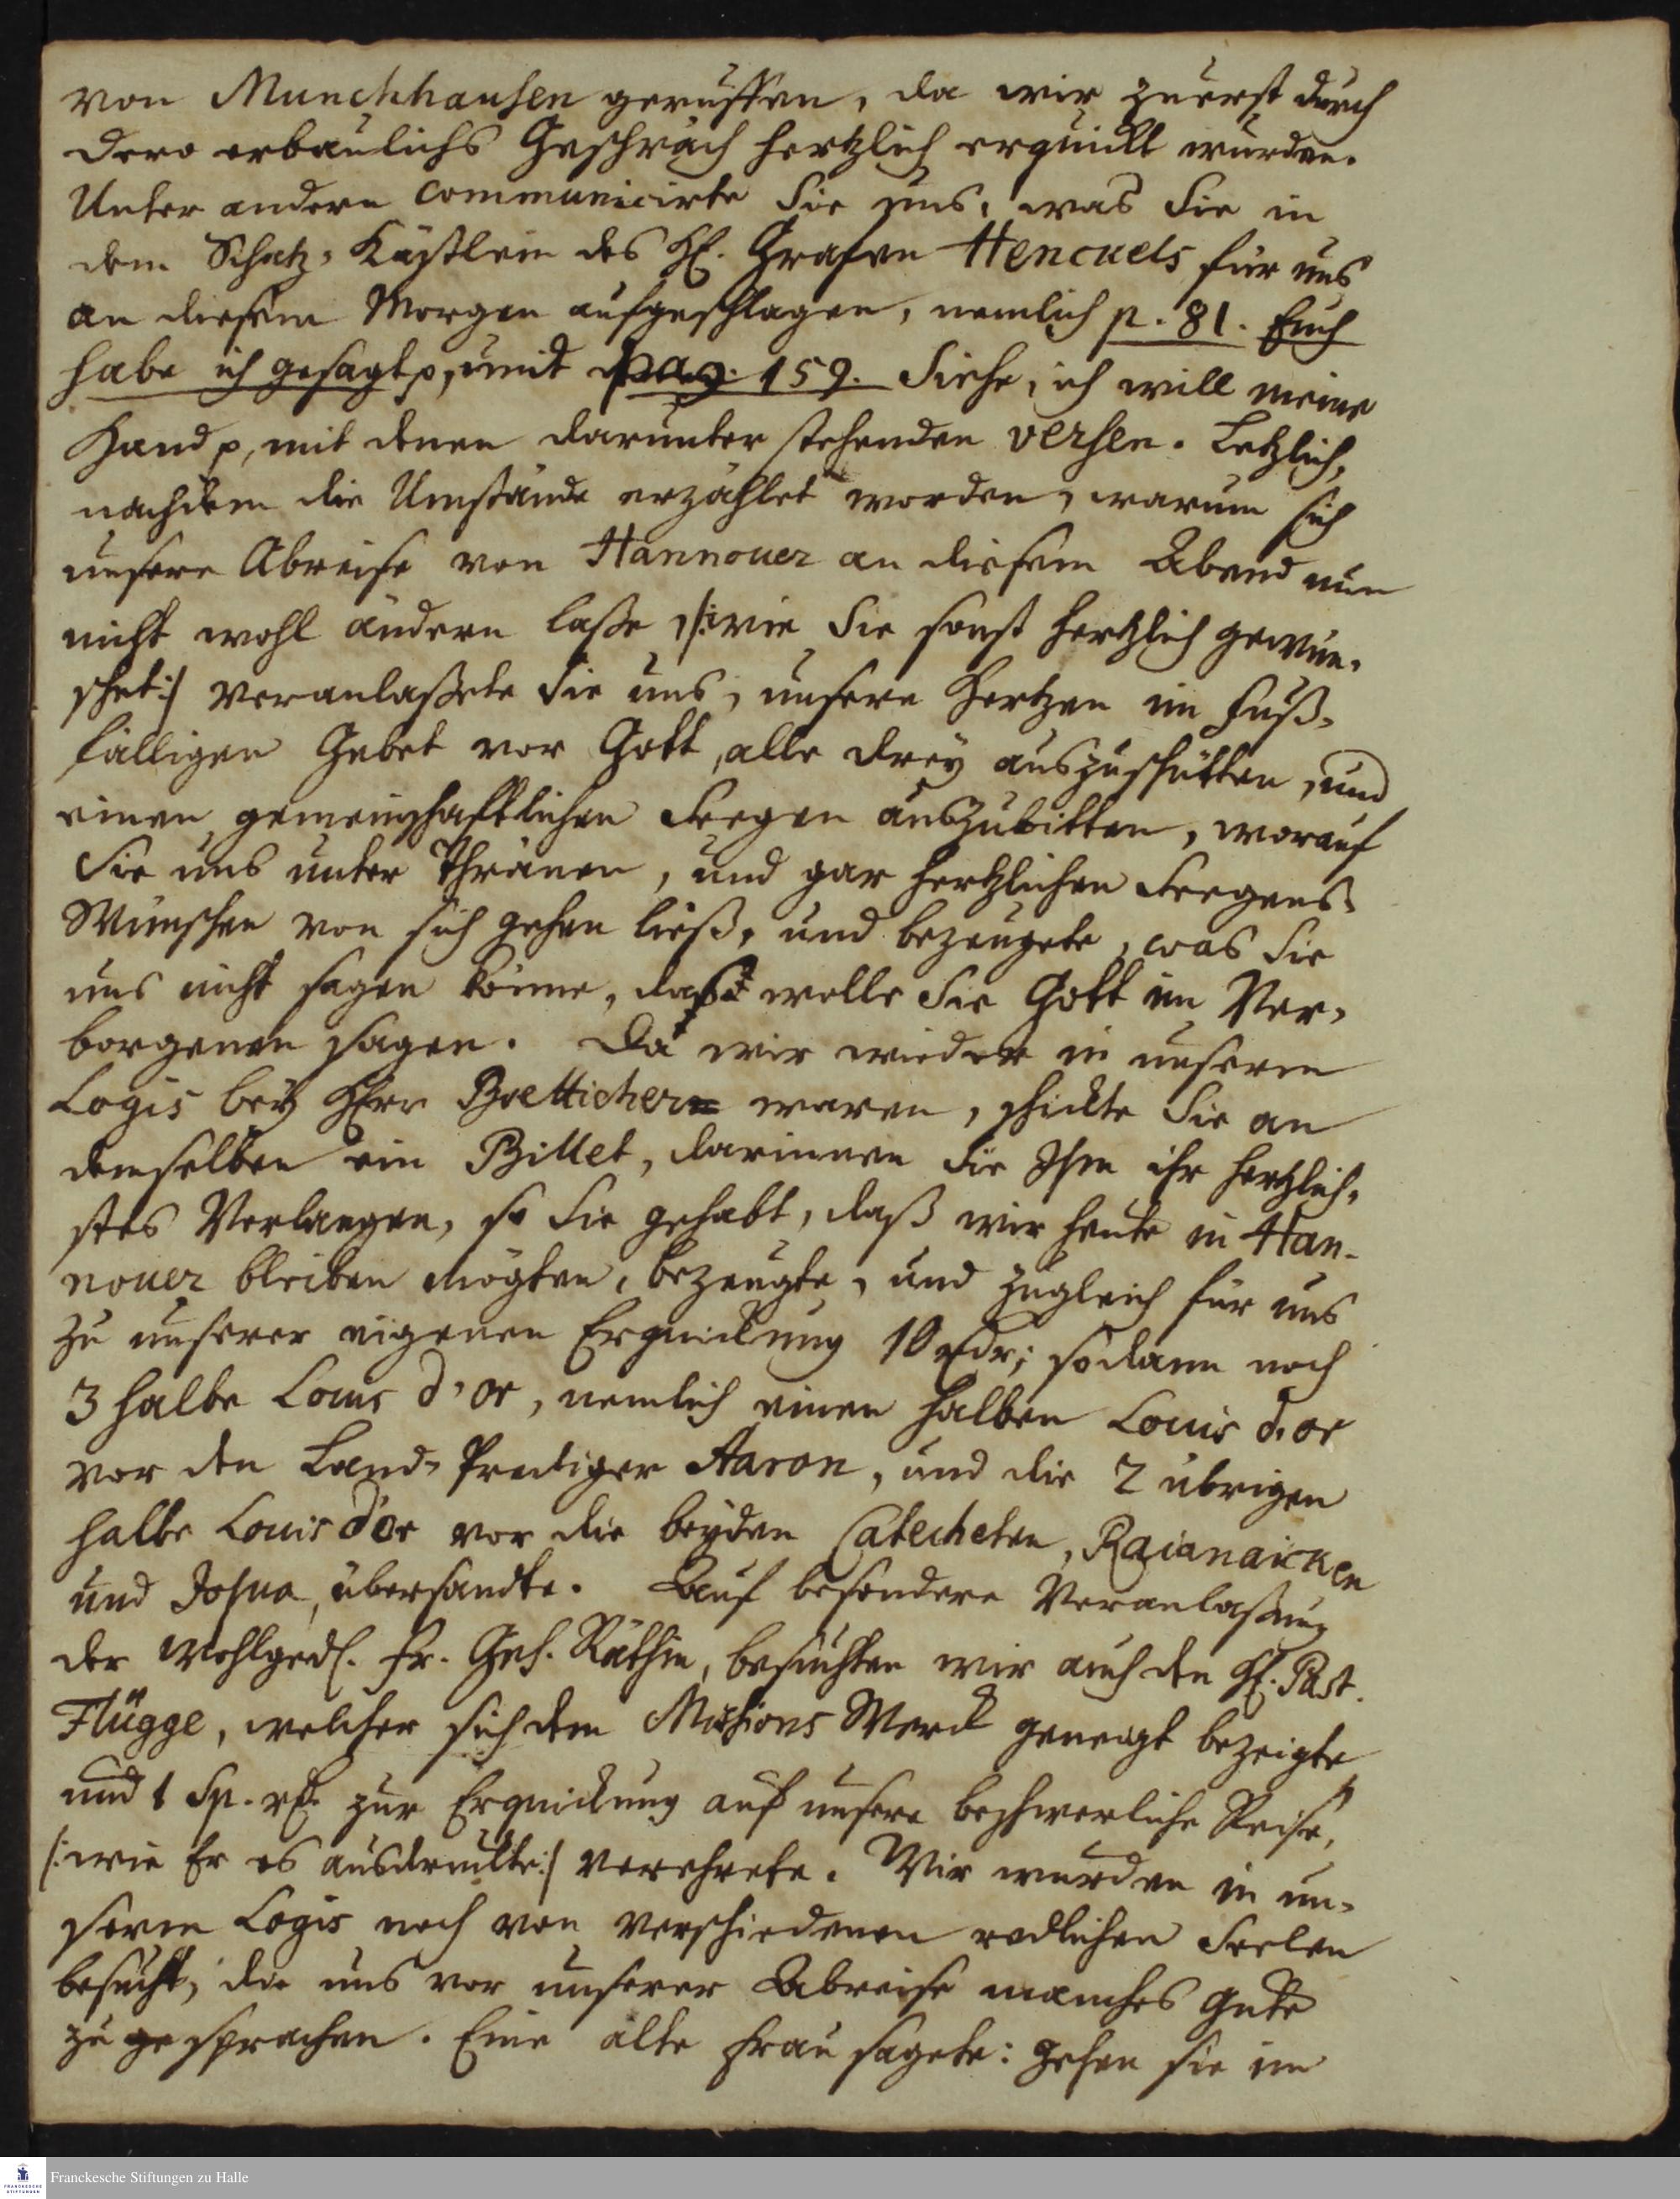 von Munchhausen geruffen, da wir zuerst durch
dero erbaulichs Gespräch hertzlich erquickt wurden.
Unter andern communicirte Sie uns, was Sie in
dem Schatz-Kästlein des H. Grafen Henckels für uns
an diesem Morgen aufgeschlagen, nemlich p. 81. Euch
habe ich gesagt p, und pag. 159. Siehe, ich will meine
Hand p, mit denen darunter stehenden versen. Letzlich,
nachdem die Umstände erzählet worden, warum sich
unsere Abreise von Hannover an diesem Abend nun
nicht wohl ändern laße /:wie Sie sonst hertzlich gewün-
schet:/ veranlaßete Sie uns, unsere Hertzen im Fuß-
fälligen Gebet vor Gott, alle drey auszuschütten, und
einen gemeinschafftlichen Seegen auszubitten, worauf
Sie uns unter Thränen, und gar hertzlichen Seegens-
Wünschen von sich gehen ließ, und bezeugete, was Sie
uns nicht sagen könne, daß wolle Sie Gott im Ver-
borgenen sagen. Da wir wieder in unserm
Logis bey Herr Boetticher waren, schickte Sie an
demselben ein Billet, darinnen Sie Ihm ihr hertzlich-
stes Verlangen, so Sie gehabt, daß wir heute in Han-
nover bleiben mögten, bezeugte, und zugleich für uns
zu unserer eigenen Erquickung 10 rthlr; sodann noch
3 halbe Louis d'or, nemlich einen halben Louis d'or
vor den Land-Prediger Aaron, und die 2 übrigen
halbe Louis d'or vor die beyden Catecheten, Raianaicken
und Josua, übersandte. Auf besondere Veranlaßung
der Wohlgedl. Fr. Geh. Räthin, besuchten wir auch den H. Past.
Flügge, welcher sich dem Missions Werck geneigt bezeigte
und 1 Sp. rth. zur Erquickung auf unsere beschwerliche Reise,
/:wie Er es ausdruckte:/ verehrete. Wir wurden in un-
serm Logis noch von verschiedenen redlichen Seelen
besucht, die uns vor unserer Abreise manches Gute
zu gesprachen. Eine alte Frau sagete: Gehen sie im
Franckesche Stiftungen zu Halle